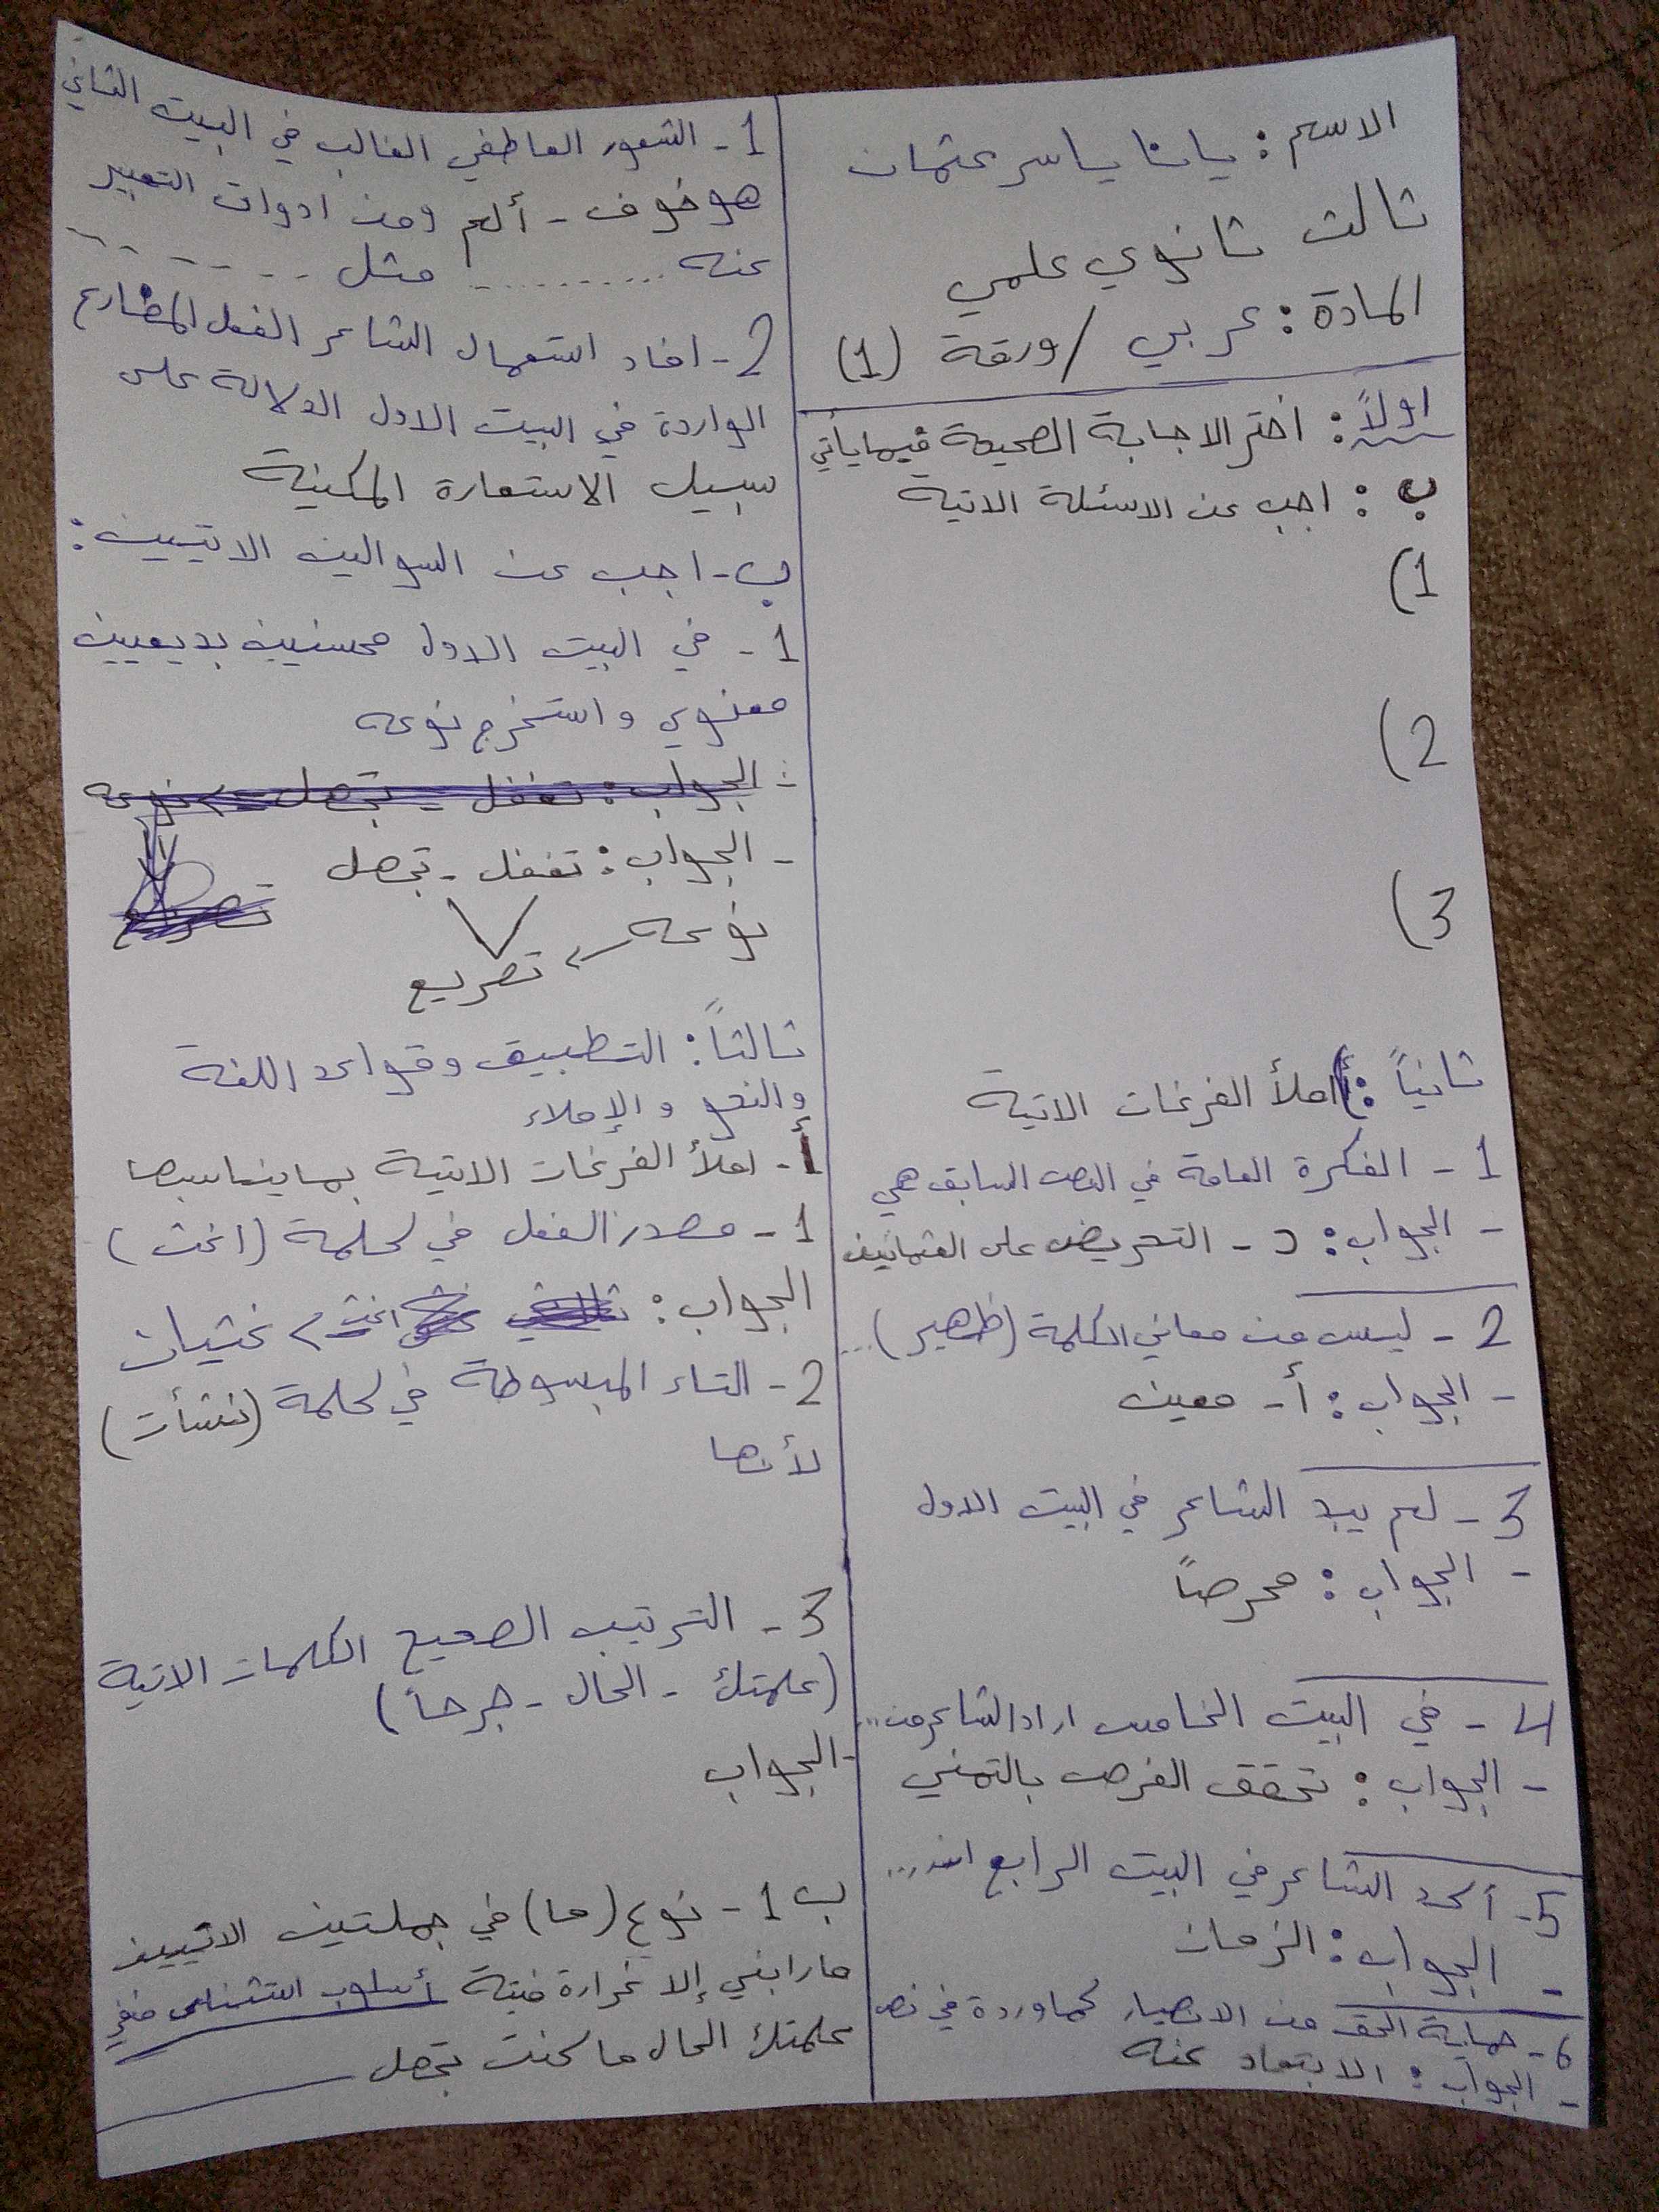 الاسم : يانا ياسر عثمان
ثالث ثانوي علمي
المادة : عربي / ورقة (1)
اولاً : اختر الاجابة الصحيحة فيما يأتي
ب : اجب عن الاسئلة الاتية
1)
2)
3)
ثانياً : أ) املأ الفرغات الاتية
1 - الفكرة العامة في النص السابق هي
- الجواب : د - التحريض على العثمانيين
2 - ليس من معاني الكلمة (ظهير) ...
- الجواب : أ - معين
3 - لم يبد الشاعر في البيت الاول
- الجواب : محرصاً
4 - في البيت الخامس اراد الشاعر من ...
- الجواب : تحقق الفرص بالتمني
5 - أكد الشاعر في البيت الرابع ان ...
- الجواب : الزمان
6 - حماية الحق من الانهيار كما وردة في نص
- الجواب : الابتعاد عنه
1 - الشعور العاطفي الغالب في البيت الثاني
هو خوف - ألم ومن ادوات التعبير
عنه .......... مثل ..........
2 - افاد استعمال الشاعر الفعل المضارع
الواردة في البيت الاول الدلالة على
سبيل الاستعارة المكنية
ب - اجب عن السوالين الاتيين :
1 - في البيت الاول محسنيين بديعيين
معنوي و استخرج نوعه
- الجواب : تغفل - تجهل نوعه
- الجواب : تغفل - تجهل
نوعه تصريع
ثالثاً : التطبيق وقواعد اللغة
والنحو و الإملاء
أ - املأ الفرغات الاتية بما يناسبها
1 - مصدر الفعل في كلمة (اغث)
الجواب : اغث غثيان
2 - التاء المبسوطة في كلمة (نشأت)
لأنها
3 - الترتيب الصحيح الكلمات الاتية
(علمتك - الحال - جرحاً)
- الجواب
ب 1 - نوع (ما) في جملتين الاتييين
ما رابني إلا غرارة فتية أسلوب استثناء منفي
علمتك الحال ما كنت تجهل